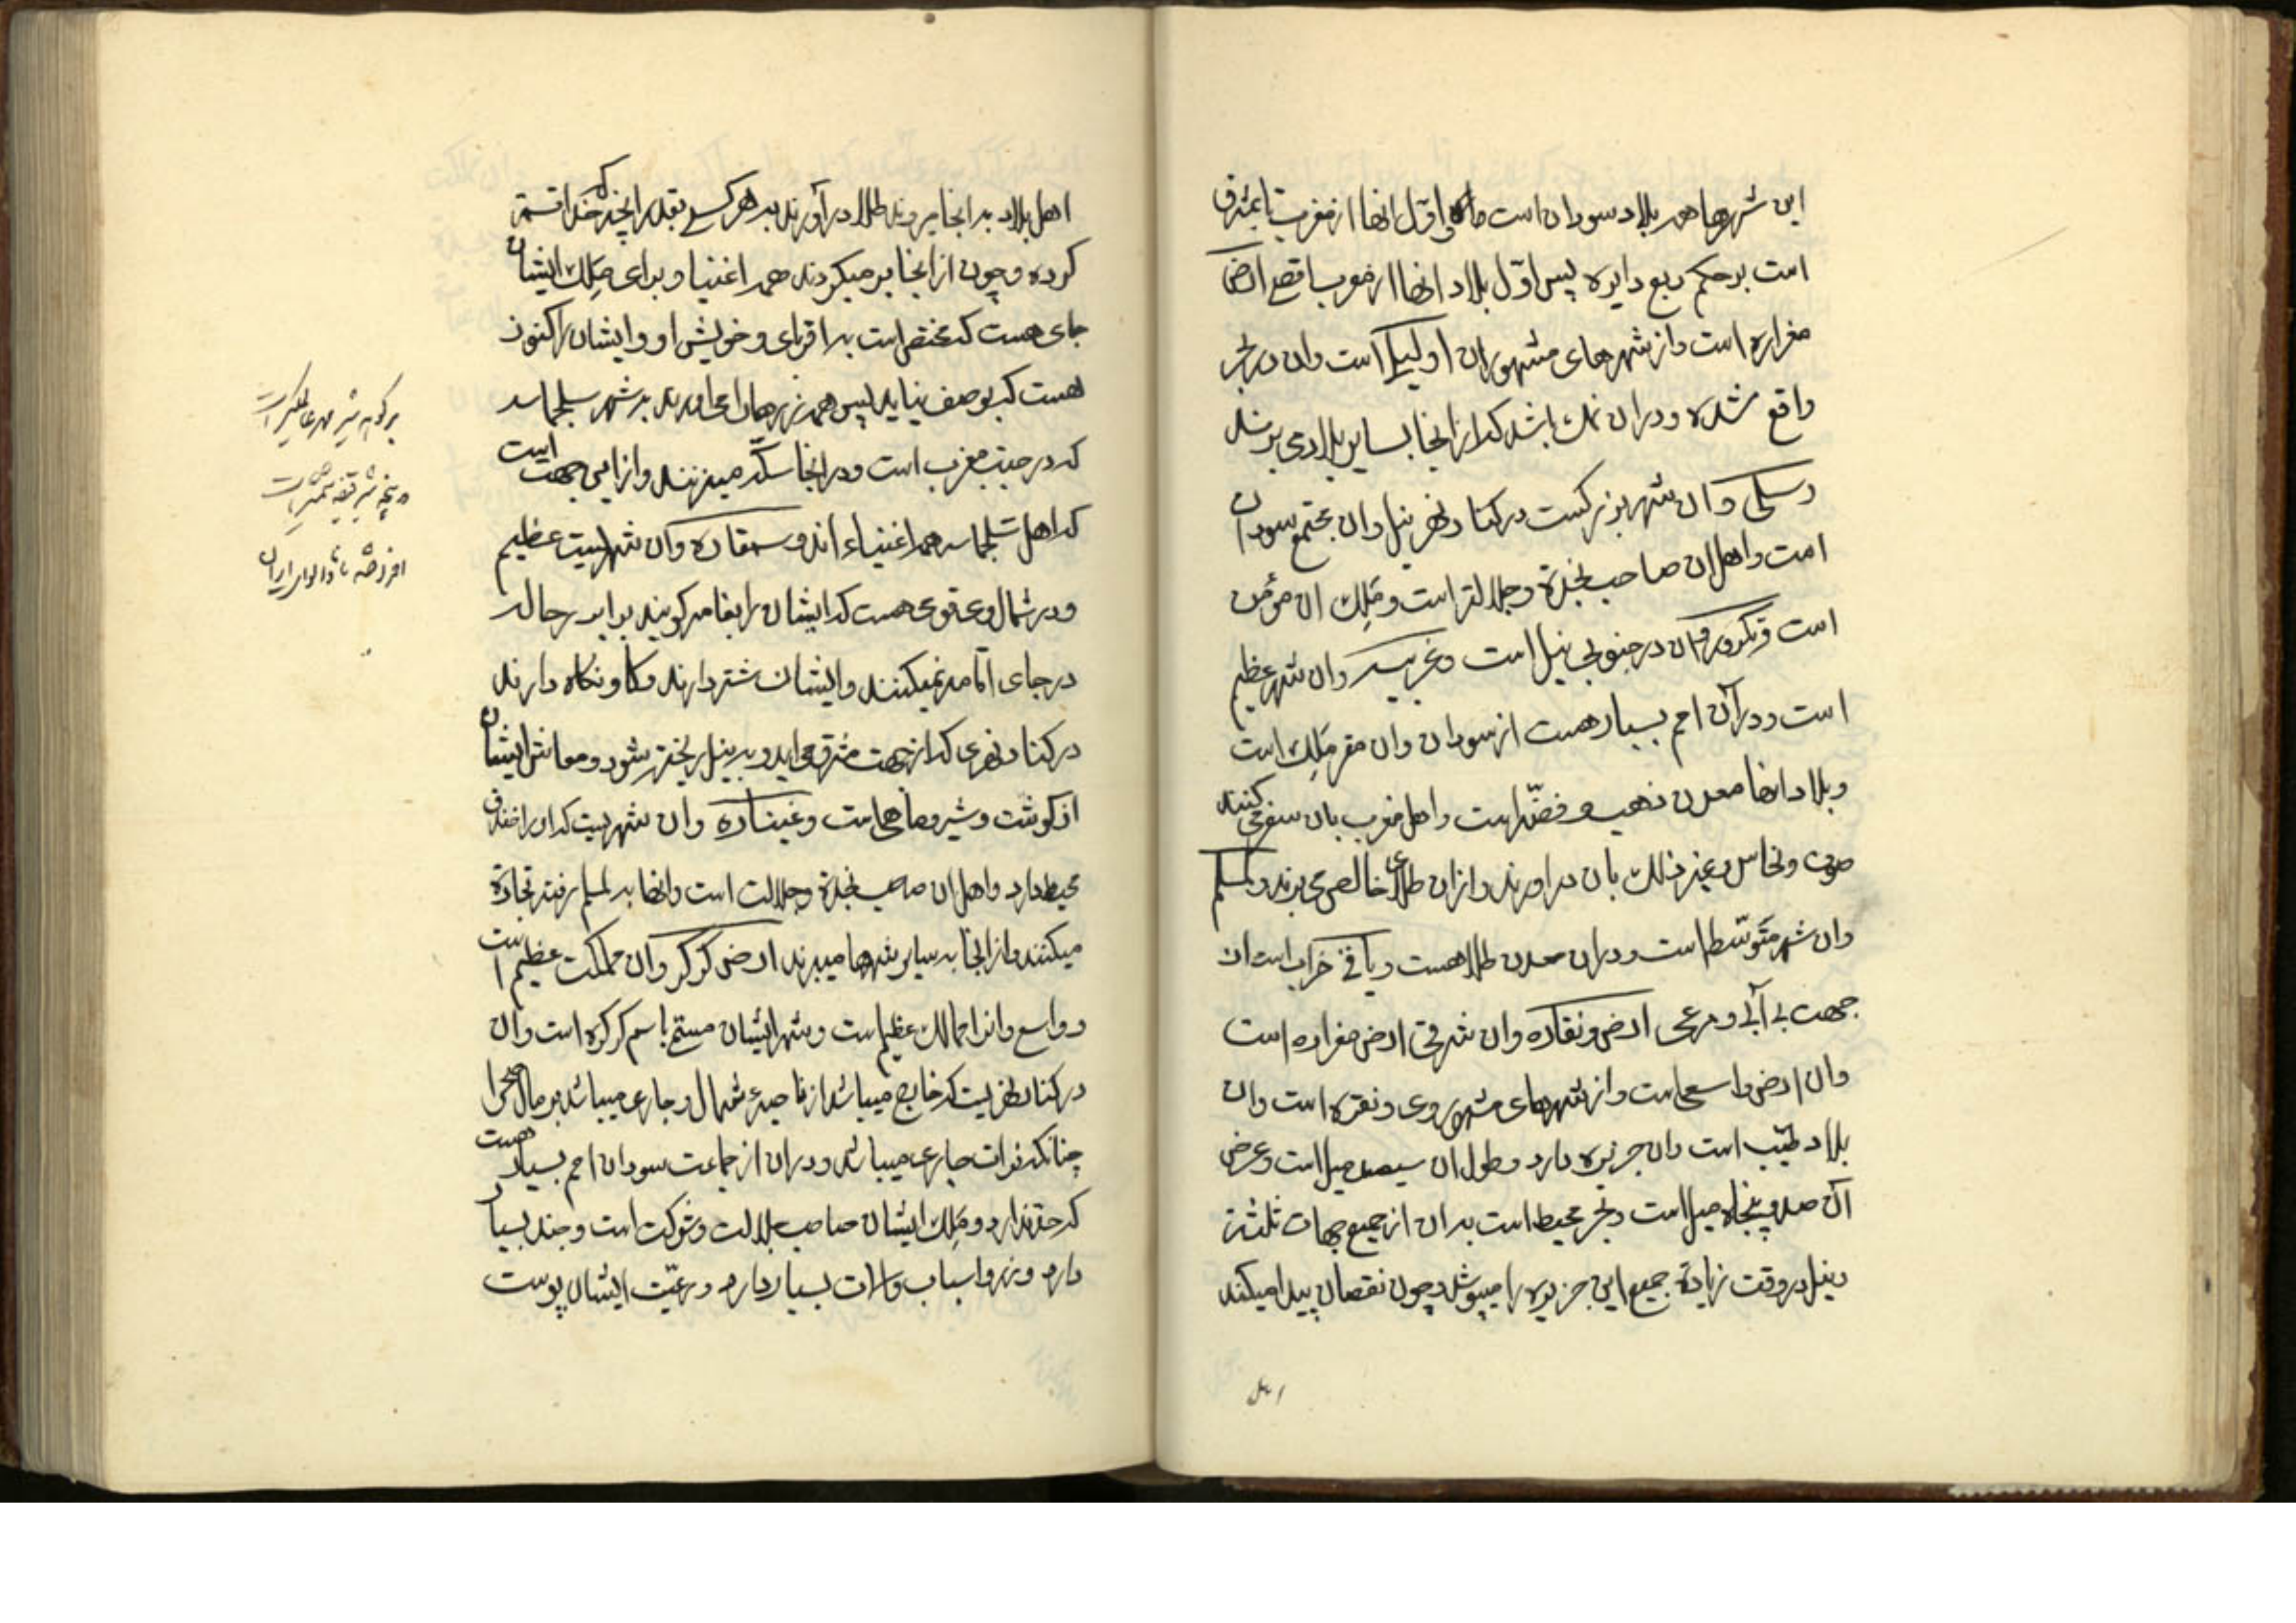 این شهرها همه بلاد سودان است و اول انها از مغرب تا بمشرق
است بر حکم ربع دایره پس اول بلاد انها از مغرب اقصی ارض
مغراره است و از شهرهای مشهور ان اولیل است و ان در بحر
واقع شده و در ان نمک باشد که از انجا بسایر بلاد می برند
و سلی و ان شهر بزرگست در کنار نهر نیل و ان مجتمع سودان
است و اهل ان صاحب نجدة و جلالتر است و مَلِک ان مؤمن
است و تکرور و ان در جنوبی نیل است و غربیه و ان شهر عظیم
است و در آن امم بسیار هست از سودان و ان مقر مَلِک است
و بلاد انها معدن ذهب و فضّه است و اهل مغرب بان سفر می کنند
صوف و نحاس و غیر ذلک بان در اورند و از ان طلای خالص می برند و لملم
وان شهر متوسّط است و در ان معدن طلا هست و باقی خراب است از
جهت بی آبی و مرعی ارض ونقاره وان شرقی ارض مغراره است
وان ارض واسعی است و از شهرهای مشهور وی ونقره است وان
بلاد طیّب است وان جزیره دارد و طول ان سیصد میل است و عرض
آن صد و پنجاه میل است و بحر محیط است بدان از جمیع جهات ثلثه
و نیل در وقت زیادة جمیع این جزیره را میپوشد و چون نقصان پیدا میکند
اهل
اهل بلاد بدانجا میروند طلا در آورند بد هر کسی بقدر انچه که خدا قسمة
کرده و چون از انجا برمیگردند همه اغنیا و برای مَلِک ایشان
جای هست که مختص است به اقربای و خویش او و ایشان را کنوز
هست که بوصف نیاید پس همه زرها را می اورند بد شهر سجلماسه
که در جنب مغرب است و در انجا سکّه میزنند و از این جهت است
که اهل سجلماسه همه اغنیاء اند و سمقاره وان شهریست عظیم
و در شمال وی قومی هست که ایشان را بغامه گویند
در جای اقامه نمیکنند و ایشان شتر دارند و گاو نگاه دارند
در کنار نهری که از جهت مشرق می اید و بد نیل ریخته شود و معاش ایشان
از گوشت و شیر و ماهی است و غیناره وان شهریست که او را خندق
محیط دارد و اهل ان صاحب نجدة و جلالت است و انها به لملم رفته تجارة
میکنند و از انجا به سایر شهرها میبرند ارض کرکر وان مملکت عظیم است
و واسع و از ممالک عظیم است و شهر ایشان مسمّی باسم کرکره است وان
در کنار نهریست که خارج میباشد از ناحیه شمال و جاری میباشد بر رمال صحرا
چنانکه فرات جاری میباشد و در ان از جماعت سودان امم بسیار هست
که حد ندارد و مَلِک ایشان صاحب جلالت و شوکت است و جند بسیار
دارد و زر و اسباب و الات بسیار دارد و رعیّت ایشان پوست
افرزضه